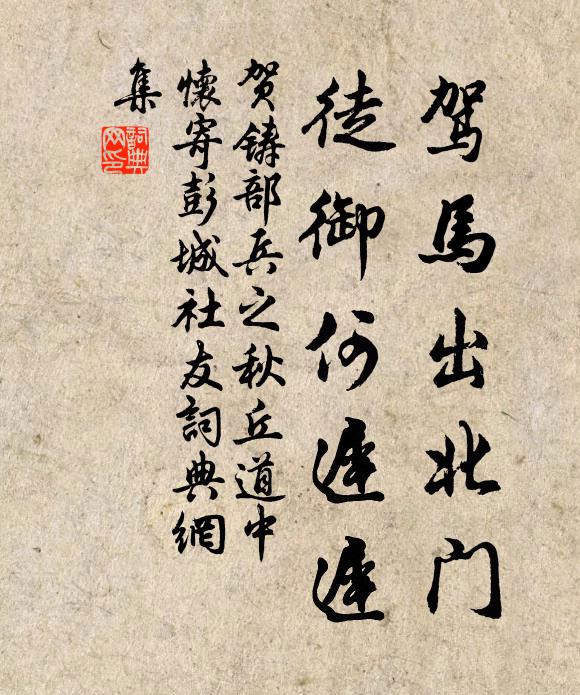 驾馬出北门
徒御何遲遲
贺铸部兵之秋丘道中
懷寄彭城社友詞典網
集
詞典
网印